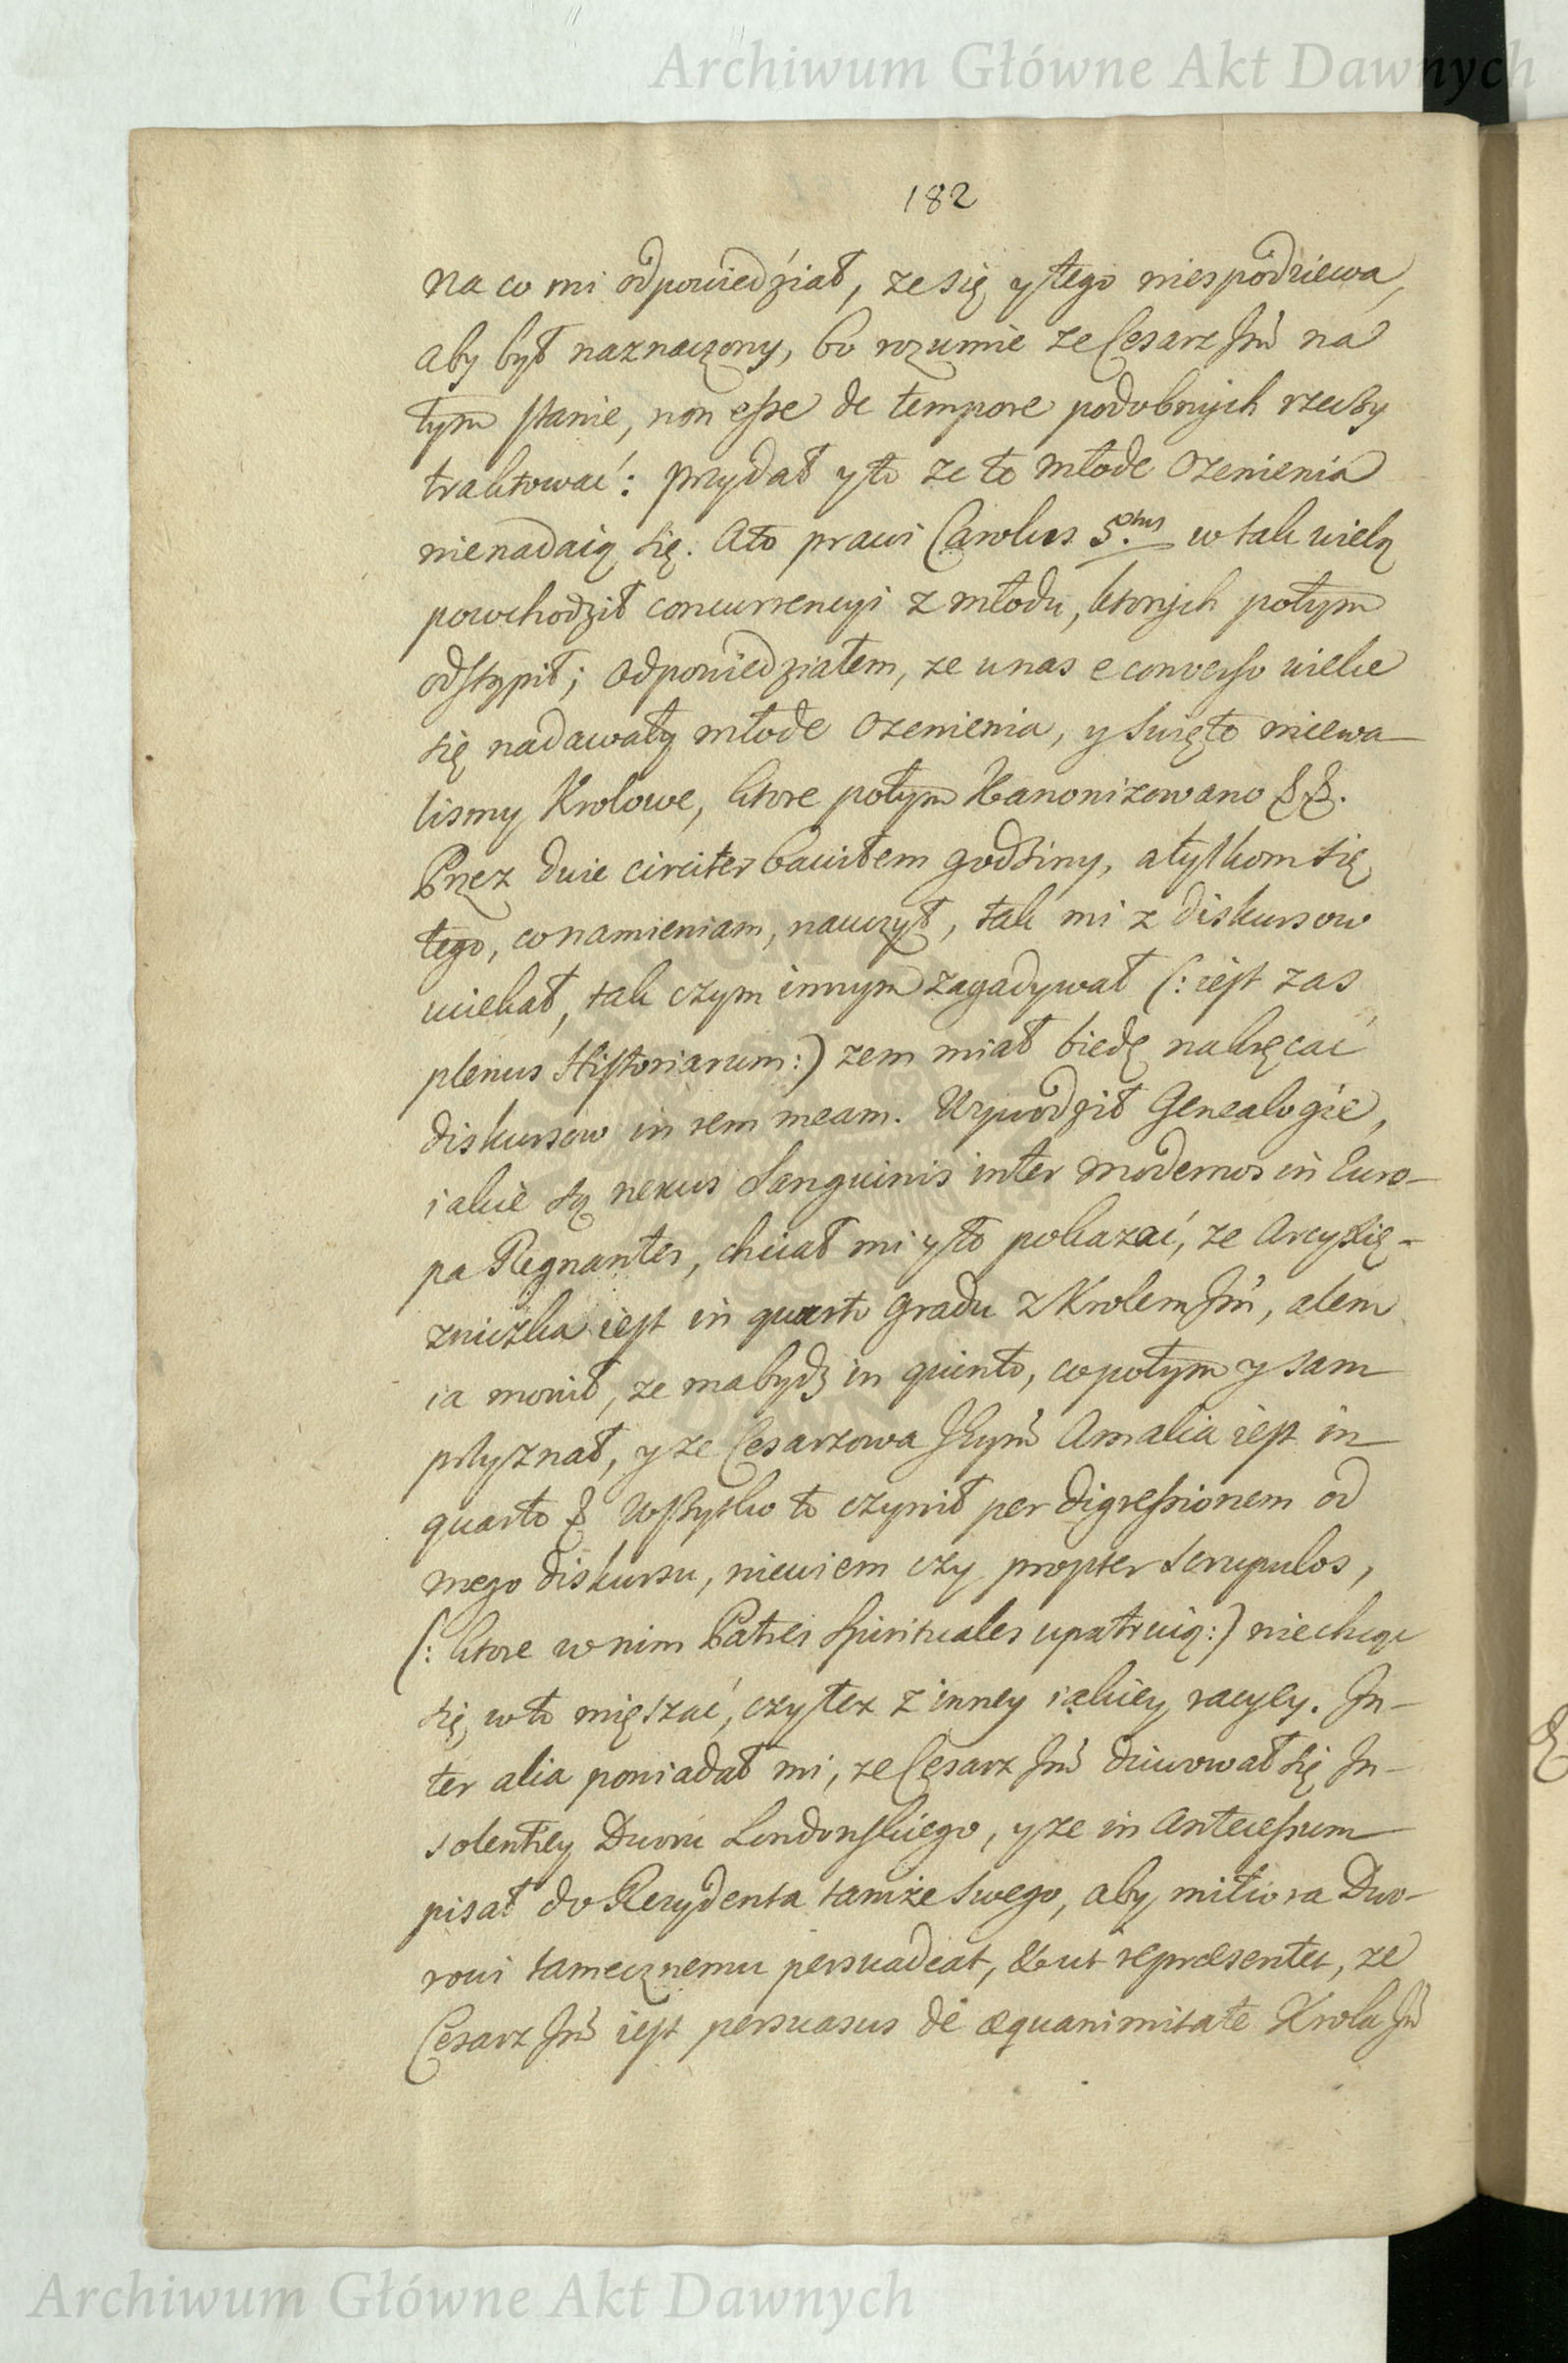 Archiwum Główne Akt Dawnych
182
na co mi odpowiedział, ze się y tego niespodziewa,
aby był naznaczony, bo rozumie ze Cesarz Jmć na
tym stanie, non esse de tempore podobnych rzeczy
traktować: przydał y to ze to młode Ozenienia
nienadaią się. Ato prawi Carolus 5.tus w tak wielą
powchodził concurrencyi z młodu, ktorych potym
odstąpił; odpowiedziałem, ze unas e converso wielce
się nadawały młode Ozenienia, y swięto miewa-
lismy Krolowe, ktore potym Kanonizowano &&.
Przez dwie circiter bawiłem godziny, atylkom się
tego, conamieniam, nauczył, tak mi z diskursow
uciekał, tak czym innym zagadywał (: iest zas
plenus Historiarum:) zem miał biedę nakręcać
diskursow in rem meam. Wywodził Genealogie,
iakie są nexus Sanguinis inter modernos in Euro-
pa Regnantes, chciał mi y to pokazać, ze Arcyxię-
zniczka iest in quarto gradu z Krolem Jmć, alem
ia monit, ze ma bydz in quinto, co potym y sam
przyznał, y ze Cesarzowa Jeymć Amalia iest in
quarto & Wszytko to czynił per digressionem od
mego diskursu, niewiem czy propter scrupulos,
(: ktore w nim Patres Spirituales upatruią:) niechcąc
się w to mięszać, czy tez z inney iakiey racyey. In-
ter alia powiadał mi, ze Cesarz Jmć dziwował się In-
solentiey Dworu Londonskiego, y ze in Antecessum
pisał do Rezydenta tamże swego, aby mitiora Dwo-
rowi tamecznemu persuadeat, & ut repræsentet, ze
Cesarz Jmć iest persuasus de æquanimitate Krola Jmć
Archiwum Główne Akt Dawnych